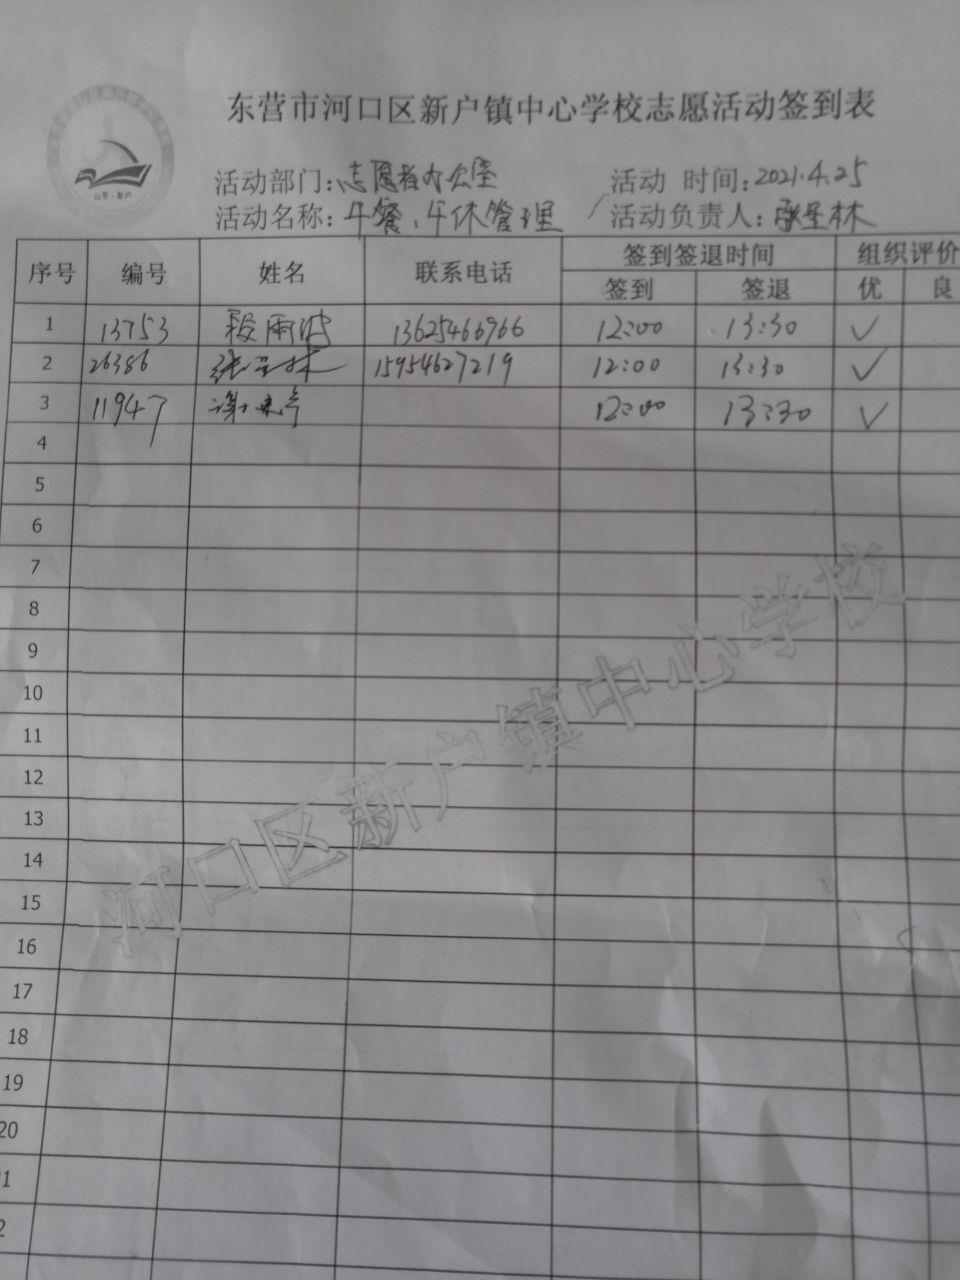 东营市河口区新户镇中心学校志愿活动签到表
活动部门:志愿者办公室 活动 时间:2021.4.25
活动名称:午餐、午休管理 活动负责人:张呈林
序号 编号 姓名 联系电话 签到签退时间 组织评价
签到 签退 优 良
1 13753 段雨波 13625466966 12:00 13:30 ✓
2 26386 张呈林 15954627219 12:00 13:30 ✓
3 11947 谢 12:00 13:30 ✓
4
5
6
7
8
9
10
11
12
13
14
15
16
17
18
19
20
1
2
河口区新户镇中心学校